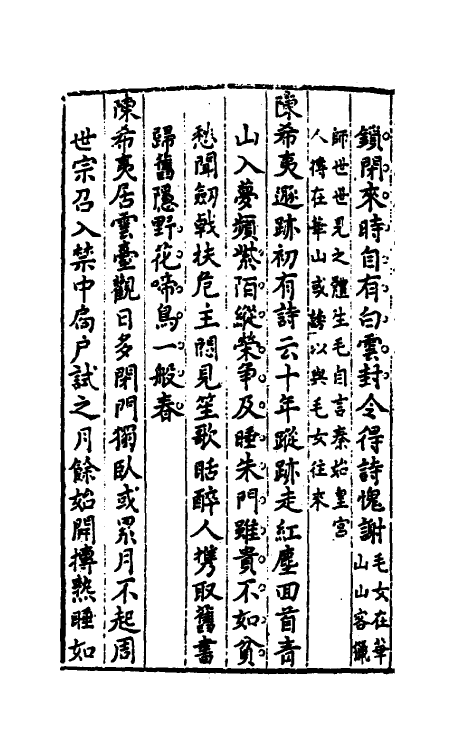 鎖閉來時自有白雲封令得詩愧謝毛女在華山山客獵
師世世見之體生毛自言秦始皇宮
人傳在華山或誇以與毛女往來
陳希夷遯跡初有詩云十年蹤跡走紅塵回首青
山入夢頻紫陌縱榮爭及睡朱門雖貴不如貧
愁聞劔戟扶危主悶見笙歌聒醉人携取舊書
歸舊隱野花啼鳥一般春
陳希夷居雲臺觀日多閉門獨臥或累月不起周
世宗召入禁中扃户試之月餘始開摶熟睡如